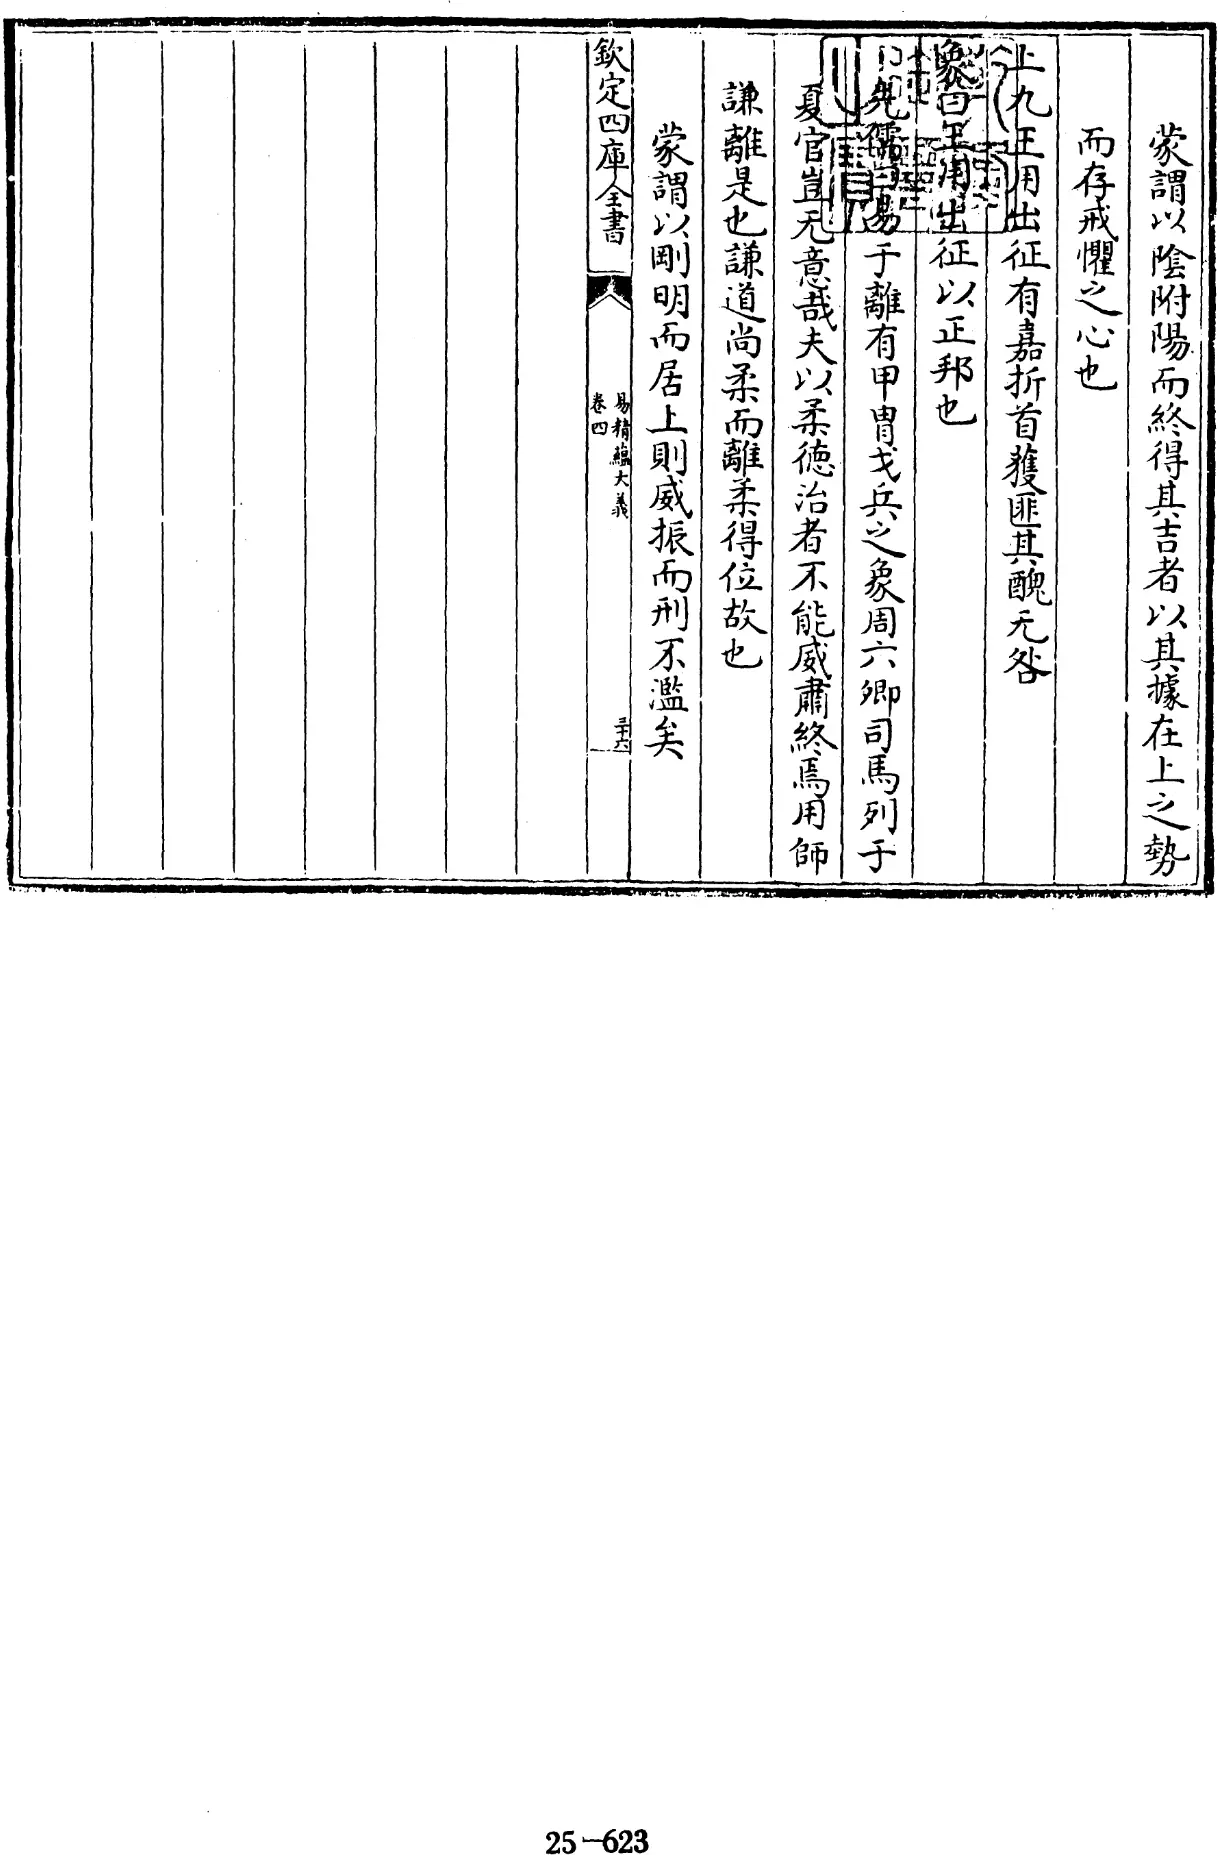 蒙謂以陰附陽而終得其吉者以其據在上之勢
而存戒懼之心也
上九王用出征有嘉折首獲匪其醜无咎
象曰王用出征以正邦也
先儒曰易于離有甲胄戈兵之象周六卿司馬列于
夏官豈无意哉夫以柔德治者不能威肅終焉用師
謙離是也謙道尚柔而離柔得位故也
蒙謂以剛明而居上則威振而刑不濫矣
欽定四庫全書
易精蘊大義
卷四
三十六
25-623